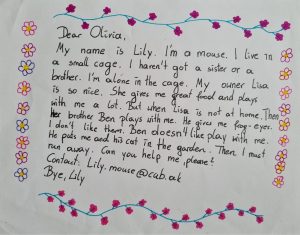 Dear Olivia,
My name is Lily. I'm a mouse. I live in
a small cage. I haven't got a sister or a
brother. I'm alone in the cage. My owner Lisa
is so nice. She gives me great food and plays
with me a lot. But when Lisa is not at home. Then
her brother Ben plays with me. He gives me frog-eyes.
I don't like them. Ben doesn't like play with me.
He puts me and his cat in the garden. Then I must
run away. Can you help me, please?
Contact: Lily.mouse@cab.uk
Bye, Lily